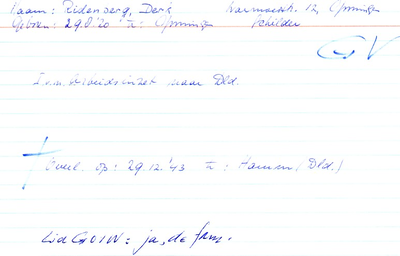 Naam: Ridenberg, Derk
Geboren: 29.8.'20 te: Groningen
12, Groningen
Schilder
GV
I.v.m. Arbeidsinzet naar Dld.
† Overl. op: 29.12.'43 te: Hamm (Dld.)
Lid GOIW: ja, de fam.